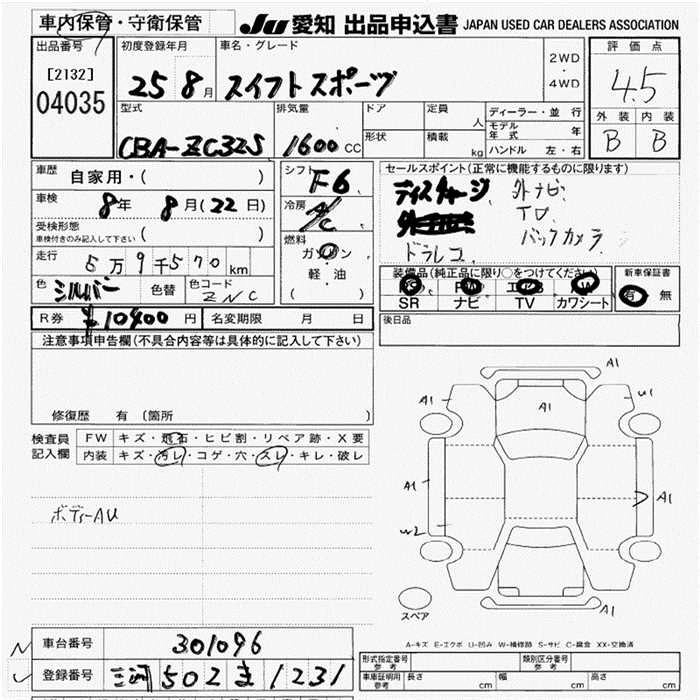 車内保管・守衛保管
JU 愛知 出品申込書 JAPAN USED CAR DEALERS ASSOCIATION
出品番号
[2132]
04035
初度登録年月
25 8月
車名・グレード
スイフトスポーツ
2WD
・
4WD
評価点
4.5
外装 内装
B B
型式
CBA-ZC32S
排気量
1600cc
ドア
形状
定員 人
積載 kg
ディーラー・並行
モデル年式 年
ハンドル 左・右
車歴
自家用・( )
車検
8年 8月(22日)
受検形態
車検付きのみ記入して下さい ( )
走行
5万9千570km
色
シルバー
色替
色コード
ZNC
シフト
F6
冷房
A/C
燃料
ガソリン
軽・油
( )
セールスポイント(正常に機能するものに限ります)
ディスチャージ 外ナビ
TV
ドラレコ バックカメラ
装備品(純正品に限り○をつけてください)
PS PW エアB AW
SR ナビ TV カワシート
新車保証書
有 無
R券 ¥10400円
名変期限 月 日
後日品
注意事項申告欄(不具合内容等は具体的に記入して下さい)
修復歴 有 (箇所
検査員記入欄
FW キズ・飛石・ヒビ割・リペア跡・X要
内装 キズ・汚レ・コゲ・穴・スレ・キレ・破レ
ボディーAU
A1
A1
A1
U1
A1
A1
W2
A1
スペア
A-キズ E-エクボ U-凹み W-補修跡 S-サビ C-腐食 XX-交換済
車台番号
301096
登録番号
三河 502 ま 1231
形式指定番号 参考
類別区分番号 参考
車庫証明用 参考
長さ cm 幅 cm 高さ cm